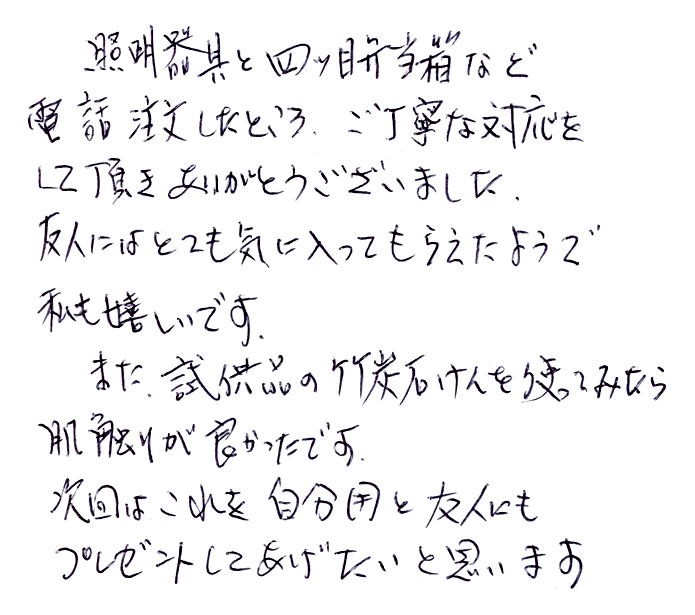 照明器具と四ッ目弁当箱など
電話注文したところ、ご丁寧な対応を
して頂きありがとうございました。
友人にはとても気に入ってもらえたようで
私も嬉しいです。
また、試供品の竹炭石けんを使ってみたら
肌触りが良かったです。
次回はこれを自分用と友人にも
プレゼントしてあげたいと思います